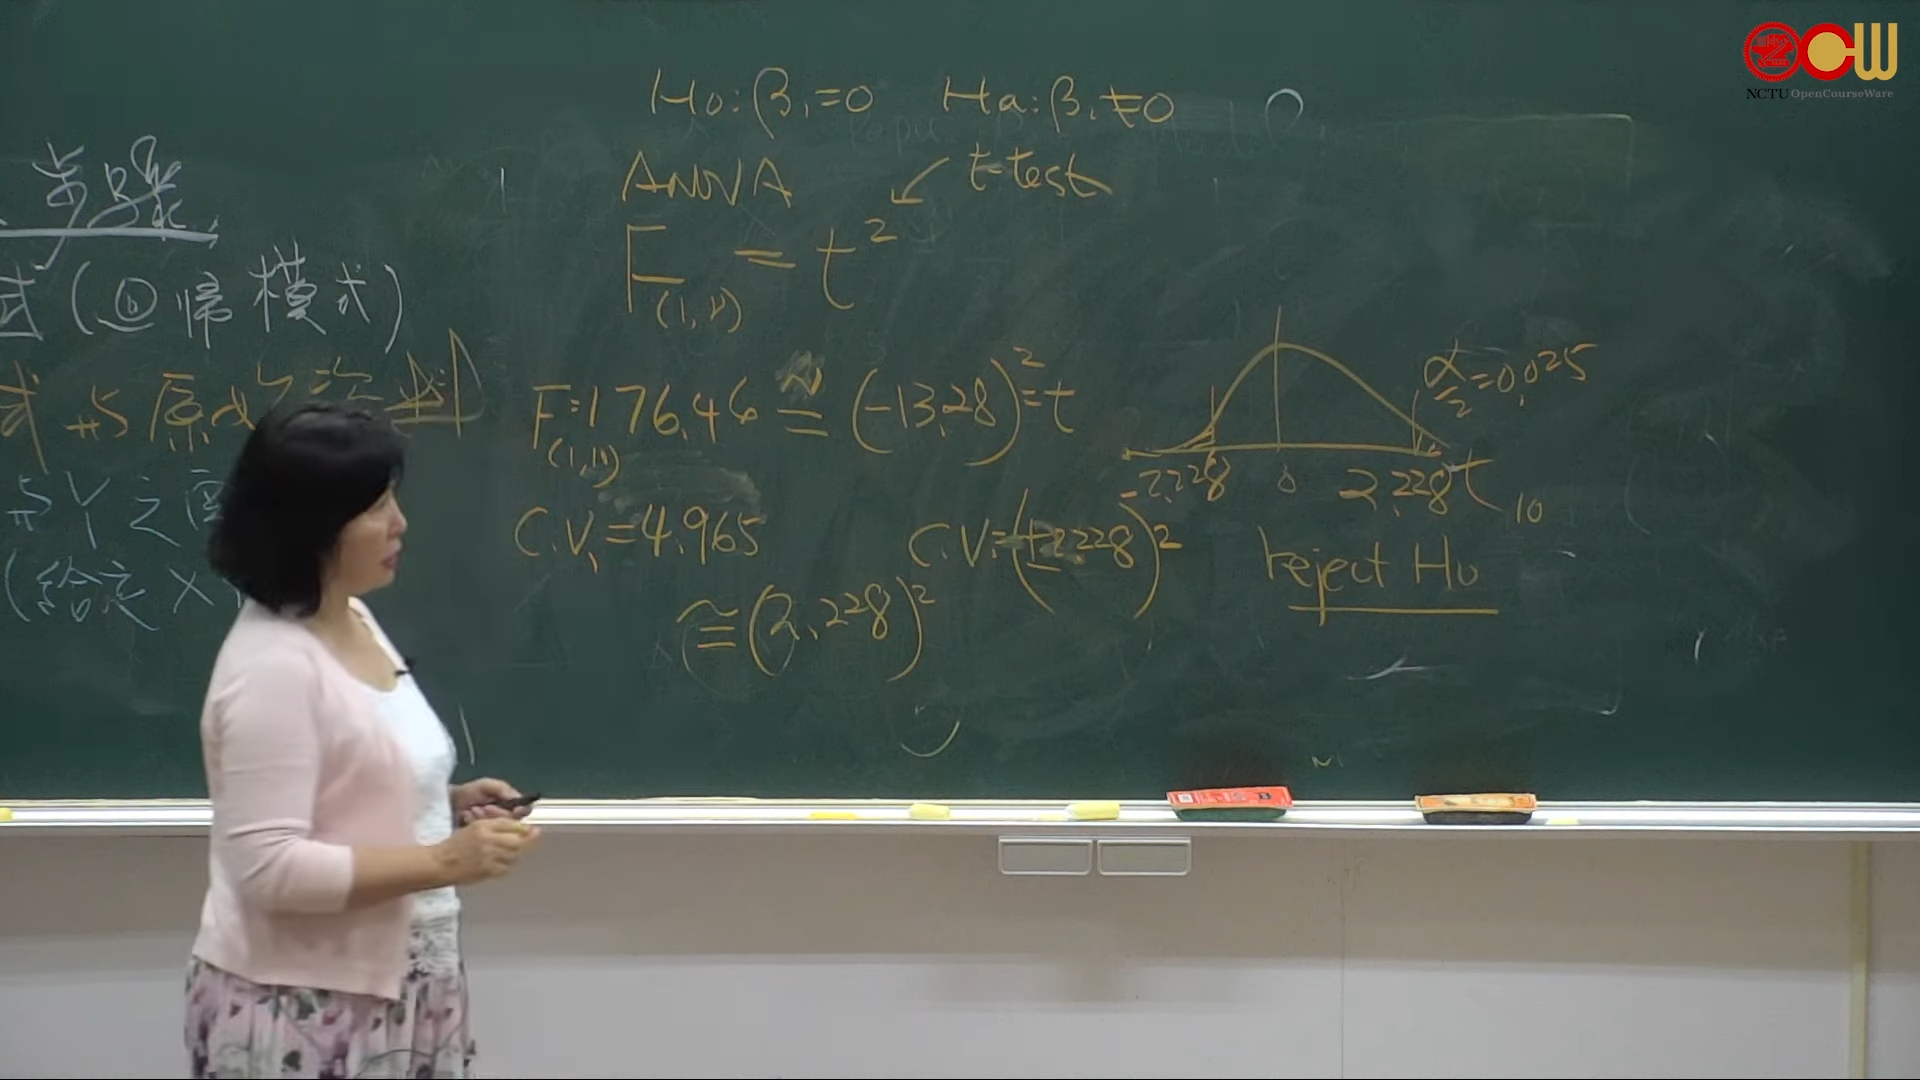 NCTU OpenCourseWare
步驟
式(回歸模式)
式 與原始資料
與Y之
(給定X
Ho: β₁=0 Ha: β₁≠0
ANOVA ↙ t-test
F(1,ν) = t²
F=176.46 ≅ (-13.28)² = t
(1,10)
C.V.=4.965
≅(2.228)²
C.V.=(±2.228)²
α/2=0.025
-2.228 0 2.228 t10
reject Ho